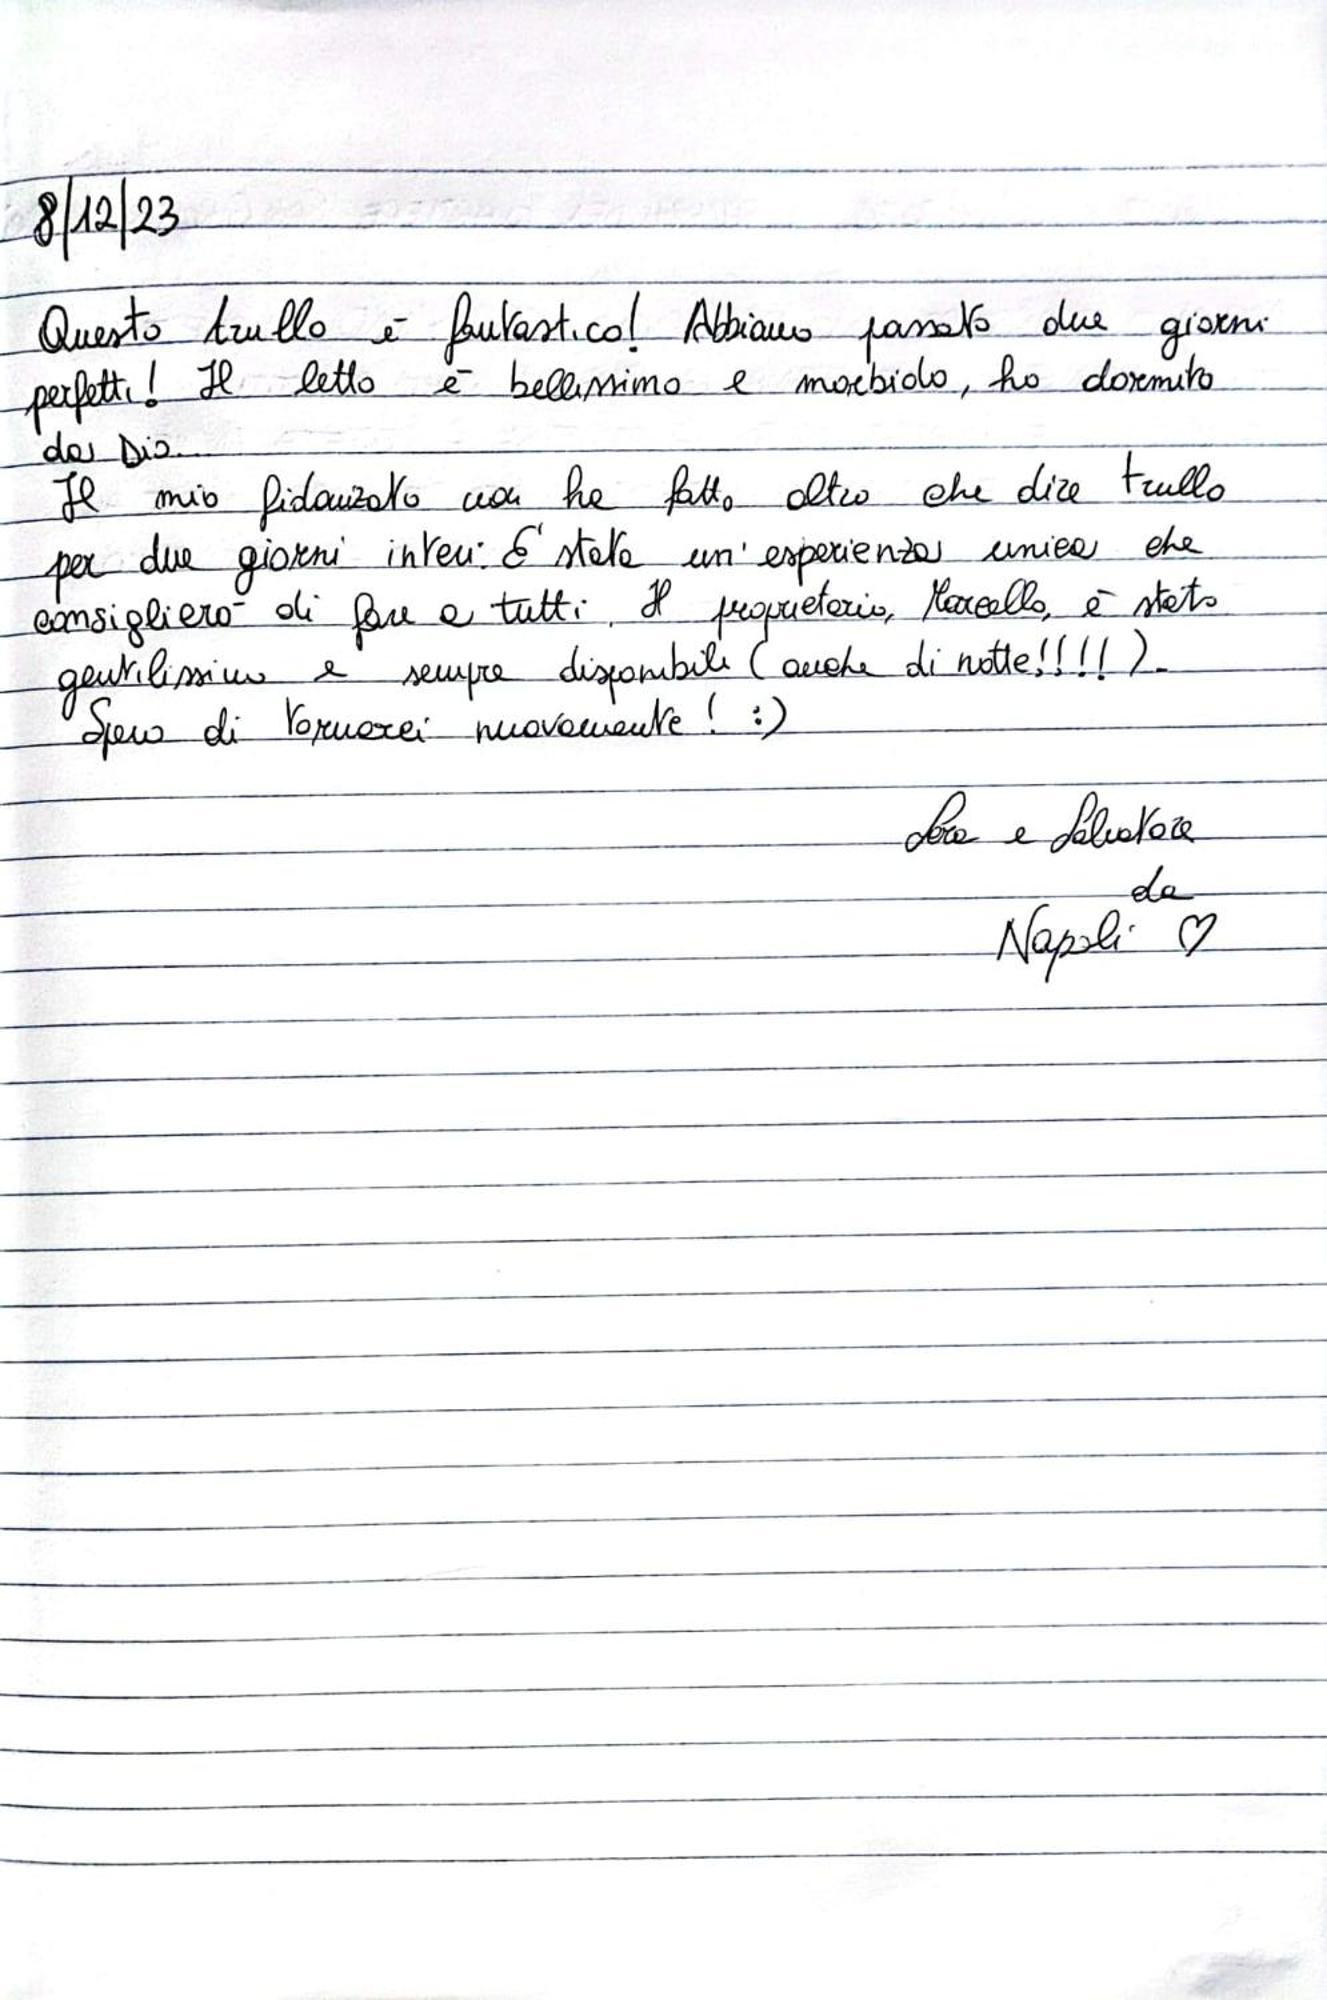 8/12/23
Questo trullo è fantastico! Abbiamo passato due giorni
perfetti! Il letto è bellissimo e morbido, ho dormito
da Dio.
Il mio fidanzato non ha fatto altro che dire trullo
per due giorni interi. E' stata un'esperienza unica che
consiglierò di fare a tutti. Il proprietario, Marcello, è stato
gentilissimo e sempre disponibile (anche di notte!!!!).
Spero di tornarci nuovamente! :)
e Salvatore
da
Napoli ♡